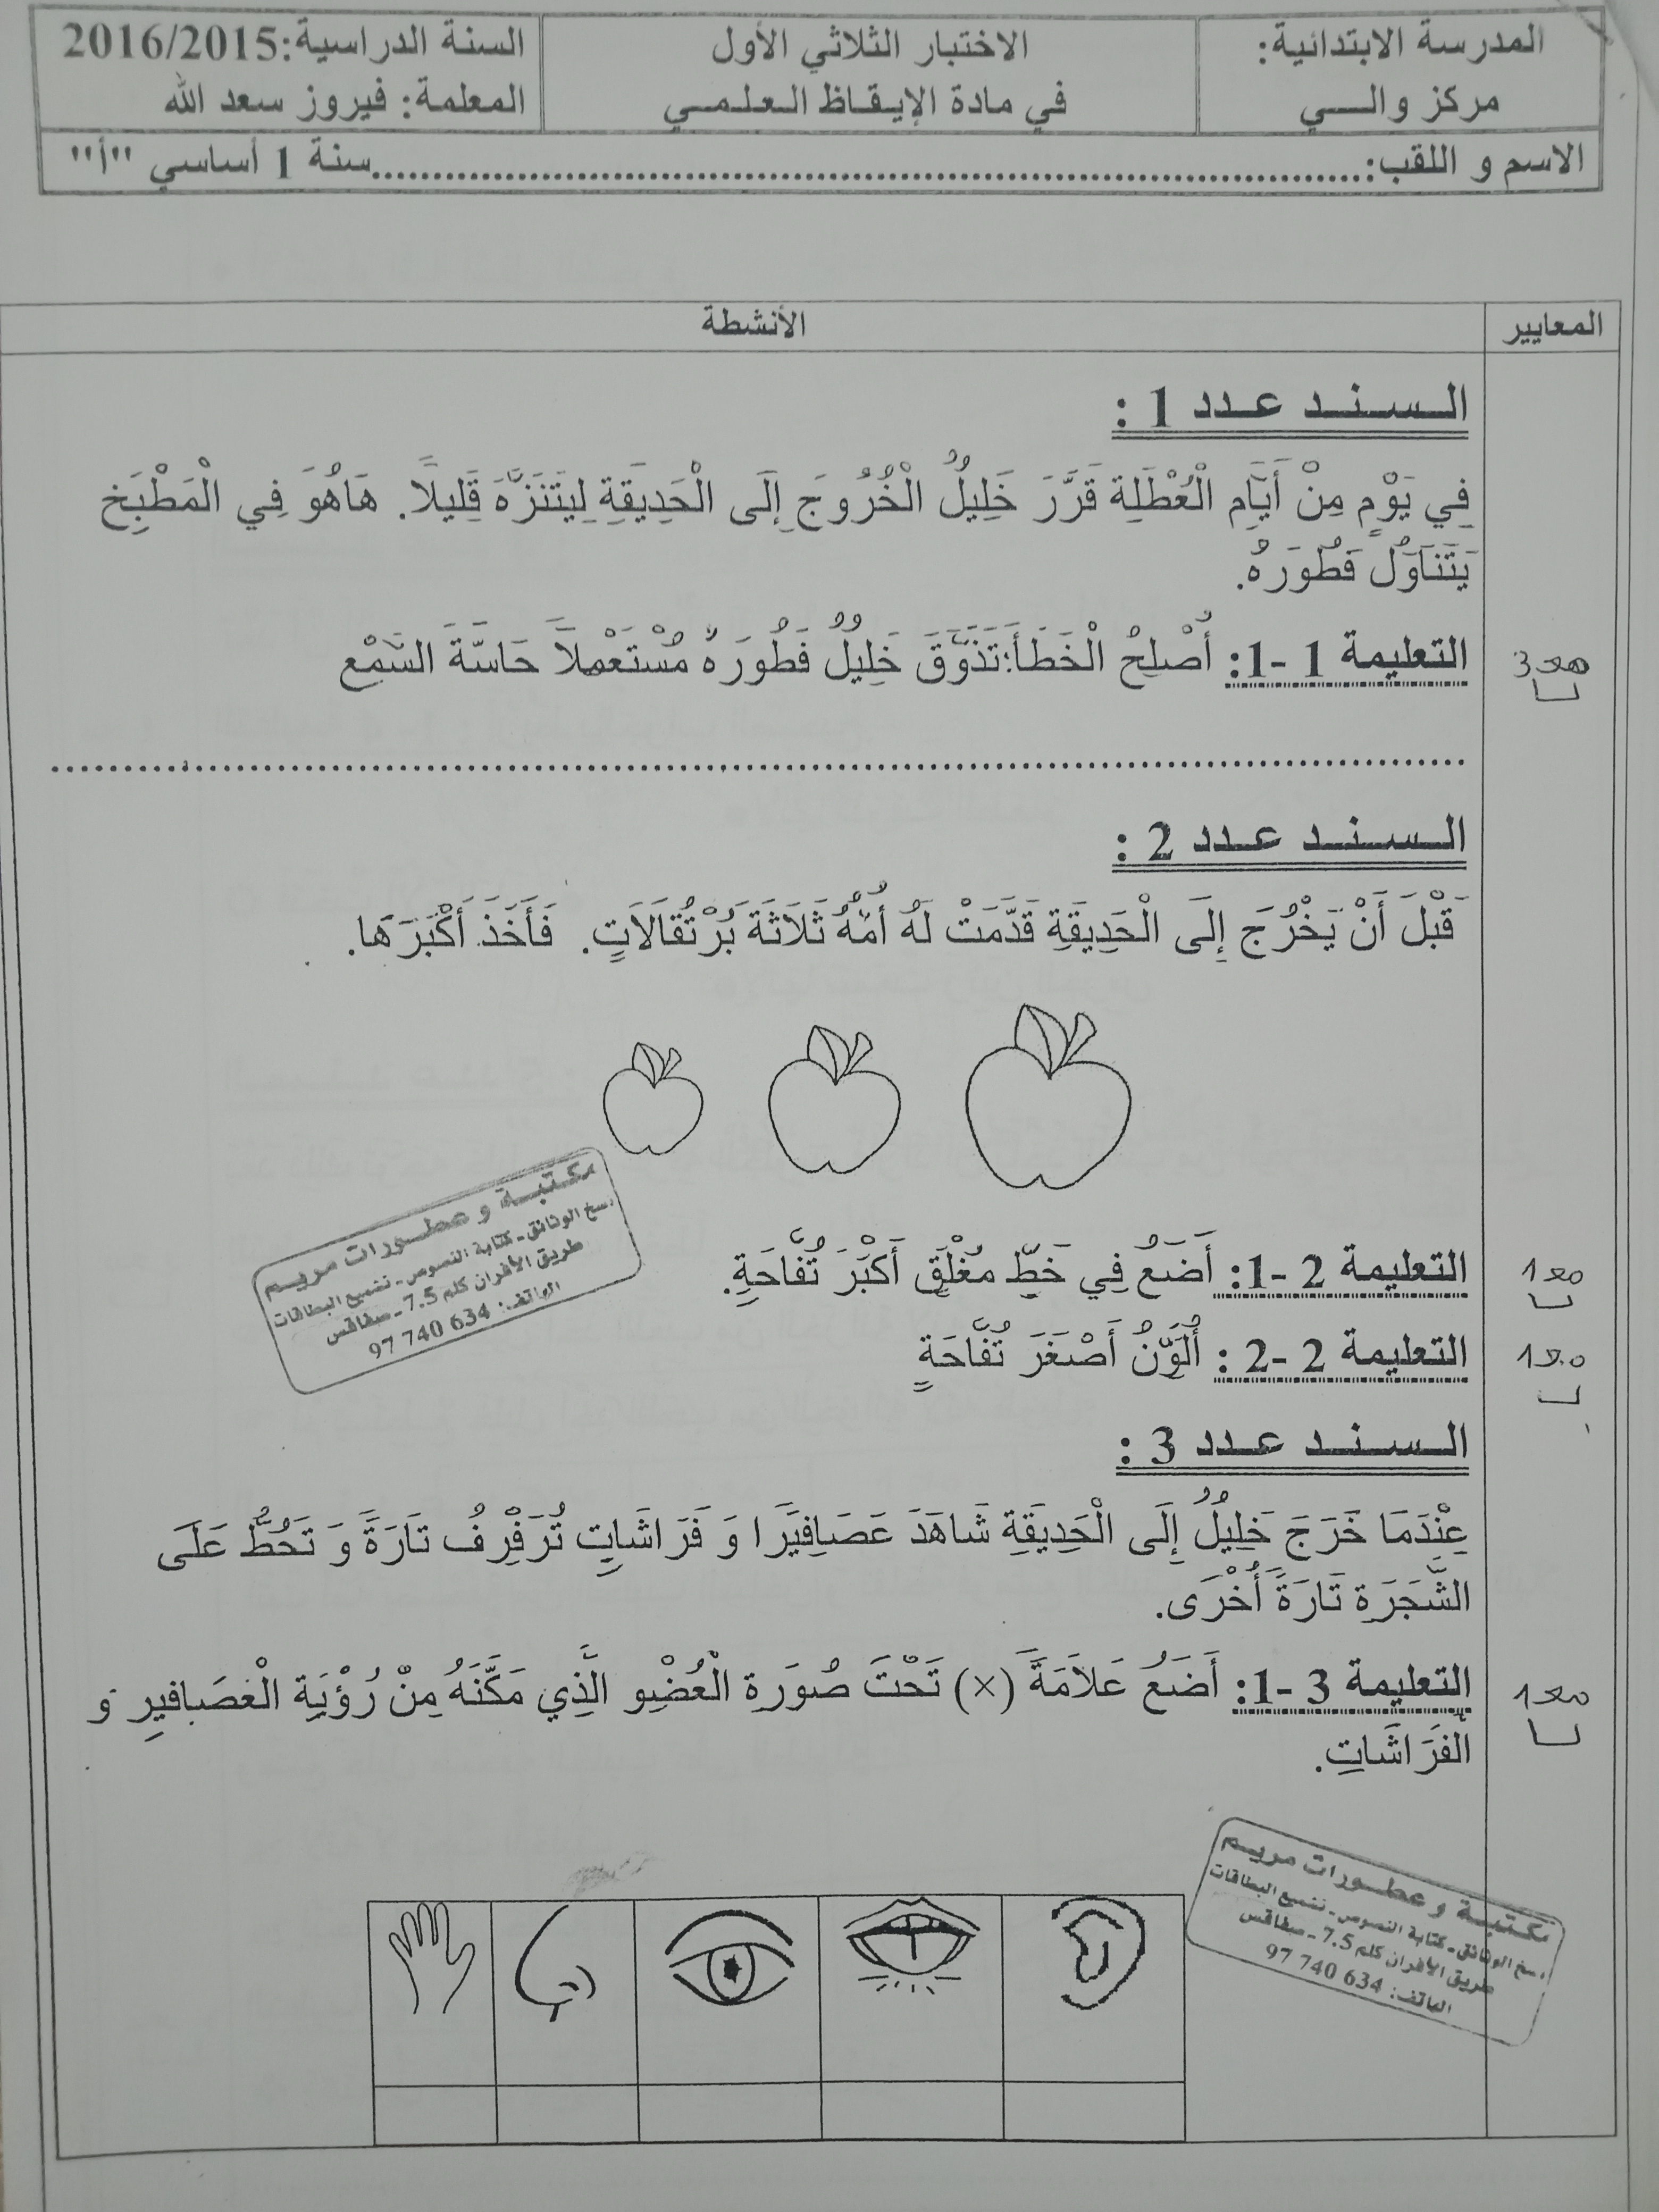 المدرسة الابتدائية:
مركز والي
الاختبار الثلاثي الأول
في مادة الإيقاظ العلمي
السنة الدراسية:2016/2015
المعلمة: فيروز سعد الله
الاسم و اللقب:..........................................................سنة 1 أساسي "أ"
المعايير
الأنشطة
السند عدد 1 :
فِي يَوْمٍ مِنْ أَيَّامِ الْعُطْلَةِ قَرَّرَ خَلِيلُ الْخُرُوجَ إِلَى الْحَدِيقَةِ لِيَتَنَزَّهَ قَلِيلًا. هَاهُوَ فِي الْمَطْبَخِ
يَتَنَاوَلُ فَطُورَهُ.
التعليمة 1 -1: أُصْلِحُ الْخَطَأَ:تَذَوَّقَ خَلِيلُ فَطُورَهُ مُسْتَعْمِلاً حَاسَّةَ السَّمْعِ
مع3
السند عدد 2 :
قَبْلَ أَنْ يَخْرُجَ إِلَى الْحَدِيقَةِ قَدَّمَتْ لَهُ أُمُّهُ ثَلَاثَةَ بُرْتُقَالَاتٍ. فَأَخَذَ أَكْبَرَهَا.
التعليمة 2 -1: أَضَعُ فِي خَطٍّ مُغْلَقٍ أَكْبَرَ تُفَّاحَةٍ.
مع1
التعليمة 2 -2 : أُلَوِّنُ أَصْغَرَ تُفَّاحَةٍ
مع1
السند عدد 3 :
عِنْدَمَا خَرَجَ خَلِيلُ إِلَى الْحَدِيقَةِ شَاهَدَ عَصَافِيرَا وَ فَرَاشَاتٍ تُرَفْرِفُ تَارَةً وَ تَحُطُّ عَلَى
الشَّجَرَةِ تَارَةً أُخْرَى.
التعليمة 3 -1: أَضَعُ عَلاَمَةَ (×) تَحْتَ صُورَةِ الْعُضْوِ الَّذِي مَكَّنَهُ مِنْ رُؤْيَةِ الْعَصَافِيرِ وَ
الْفَرَاشَاتِ.
مع1
مكتبة و عطورات مريم
نسخ الوثائق - كتابة النصوص - تشميع البطاقات
طريق الأفران كلم 7.5 - صفاقس
الهاتف: 97 740 634
مكتبة و عطورات مريم
نسخ الوثائق - كتابة النصوص - تشميع البطاقات
طريق الأفران كلم 7.5 - صفاقس
الهاتف: 97 740 634